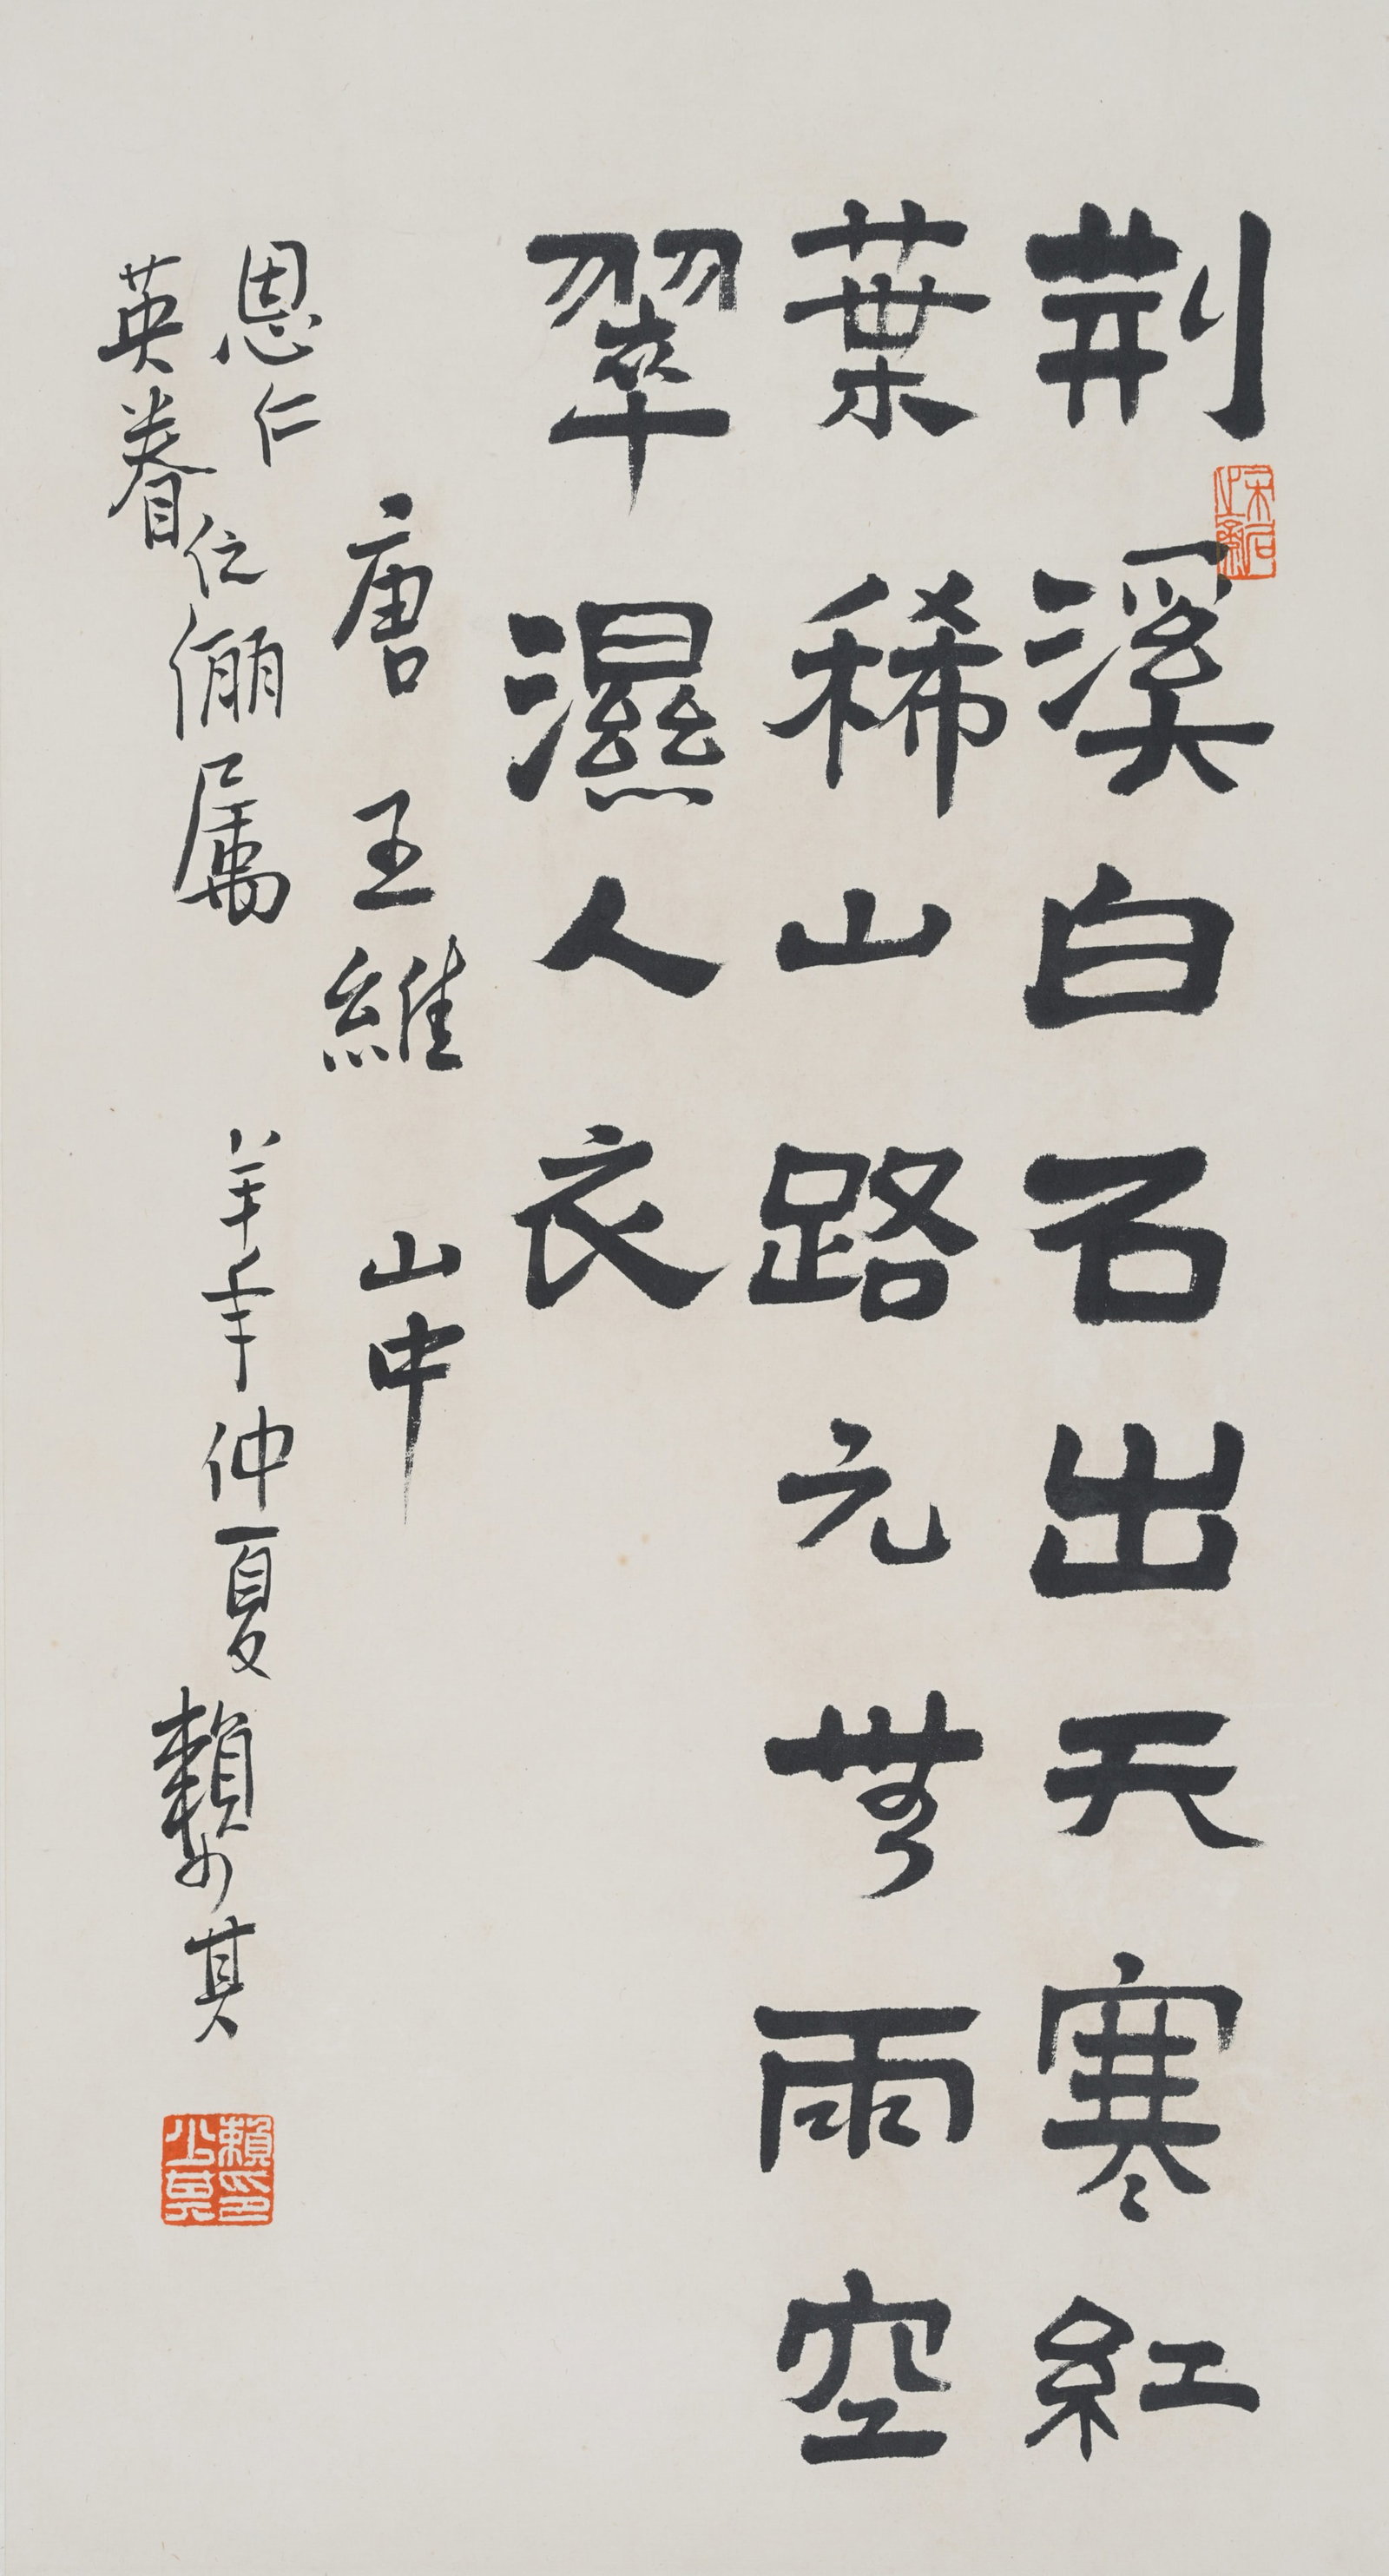 荆溪白石出天寒紅
葉稀山路元無雨空
翠濕人衣
唐王維 山中
恩仁
英眷
伉俪属 羊年仲夏賴少其
賴少其印